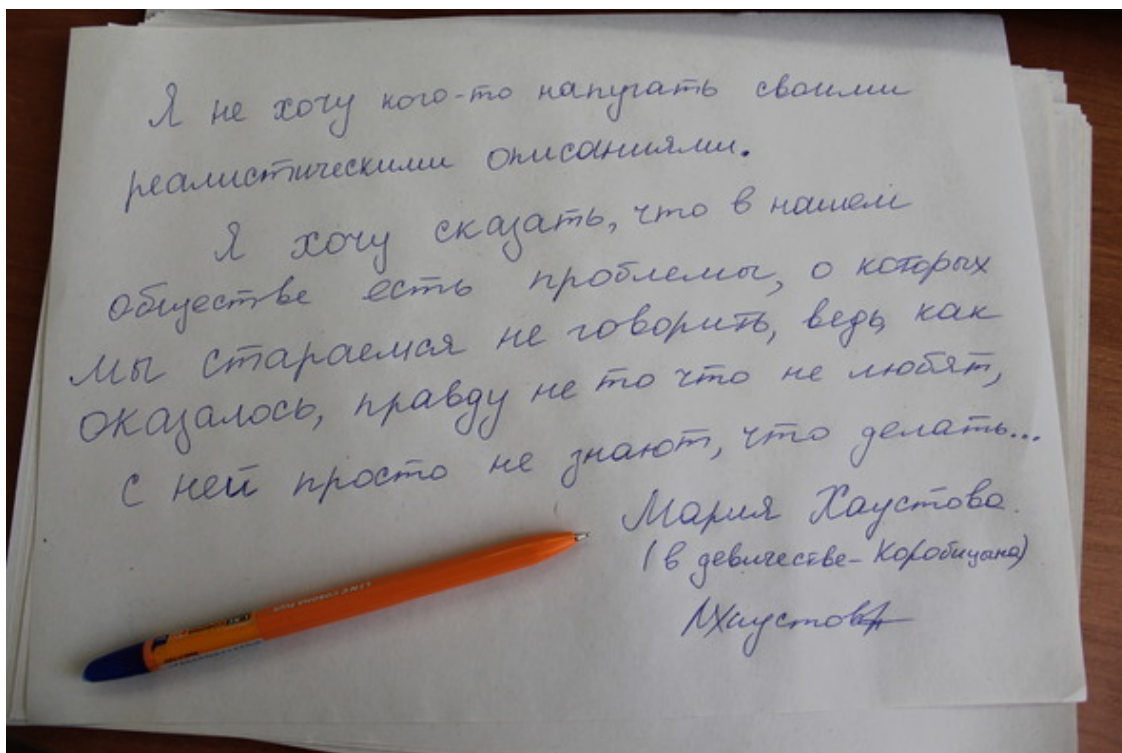 Я не хочу кого-то напугать своими
реалистическими описаниями.
Я хочу сказать, что в нашем
обществе есть проблемы, о которых
мы стараемся не говорить, ведь, как
оказалось, правду не то что не любят,
с ней просто не знают, что делать...
Мария Хаустова.
(в девичестве - Коробицына)
МХаустова